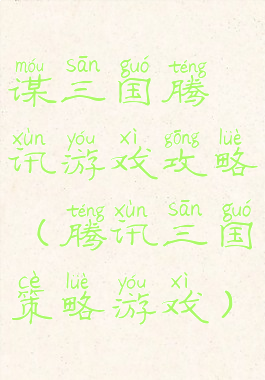 móu sān guó téng
谋三国腾
xùn yóu xì gōng lüè
讯游戏攻略
téng xùn sān guó
（腾讯三国
cè lüè yóu xì
策略游戏）